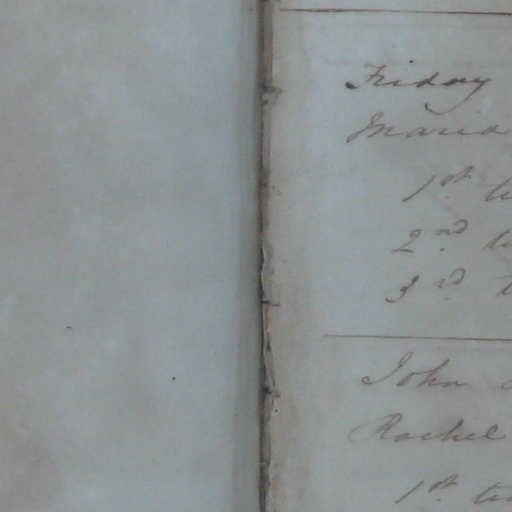 Friday
Maria
1st ti
2nd ti
3rd t
John
Rachel
1st ti